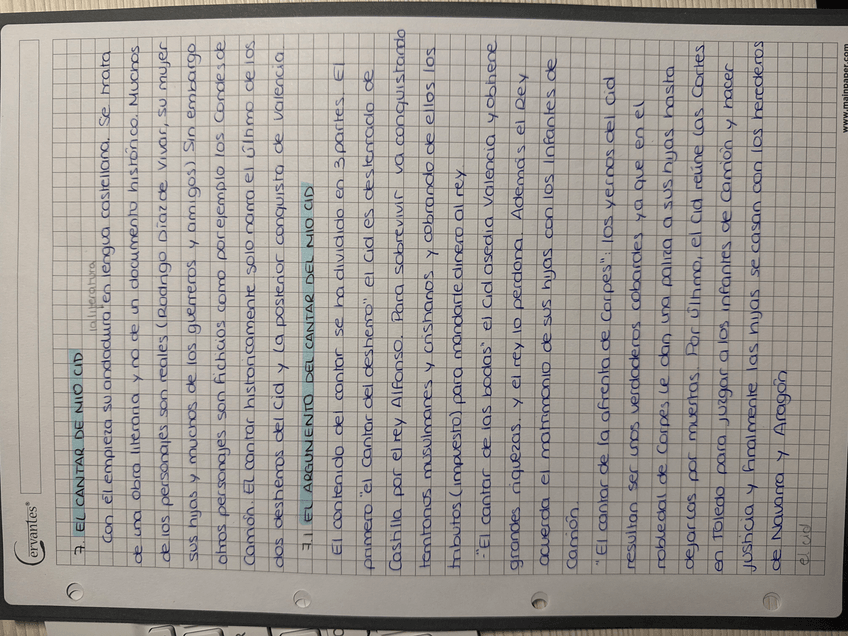 Cervantes®
7. EL CANTAR DE MIO CID
la literatura
Con él empieza su andadura en lengua castellana. Se trata
de una obra literaria y no de un documento histórico. Muchos
de los personajes son reales (Rodrigo Díaz de Vivar, su mujer
sus hijas y muchos de los guerreros y amigos) Sin embargo
otros personajes son ficticios como por ejemplo los Condes de
Carrión. El cantar históricamente solo narra el último de los
dos destierros del Cid y la posterior conquista de Valencia
7.1 EL ARGUMENTO DEL CANTAR DEL MIO CID
El contenido del cantar se ha dividido en 3 partes. El
primero "el Cantar del destierro" el Cid es desterrado de
Castilla por el rey Alfonso. Para sobrevivir va conquistando
territorios musulmanes y cristianos y cobrando de ellos los
tributos (impuesto) para mandarle dinero al rey.
-"El cantar de las bodas" el Cid asedia Valencia y obtiene
grandes riquezas y el rey lo perdona. Además el Rey
acuerda el matrimonio de sus hijas con los Infantes de
Carrión.
"El cantar de la afrenta de Corpes": los yernos del Cid
resultan ser unos verdaderos cobardes ya que en el
robledal de Corpes le dan una paliza a sus hijas hasta
dejarlas por muertas. Por último, el Cid reúne las Cortes
en Toledo para juzgar a los infantes de Carrión y hacer
justicia y finalmente las hijas se casan con los herederos
de Navarra y Aragón
el cid
www.mainpaper.com